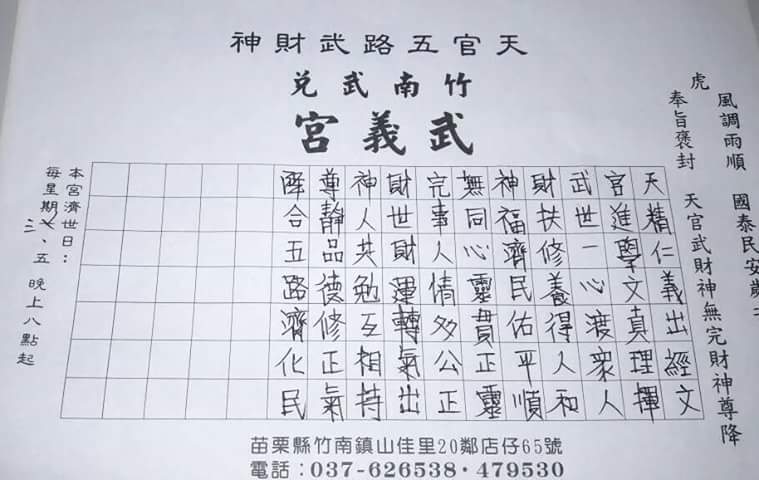 天官五路武財神
竹南武兌
武義宮
風調雨順 國泰民安歲
虎
奉旨褒封 天官武財神無完財神尊降
天精仁義出經文
官進學文真理揮
武世一心渡眾人
財扶修養得人和
神福濟民佑平順
無同心靈貫正靈
完事人情多公正
財世財運轉氣出
神人共勉互相持
尊靜品德修正氣
降合五路濟化民
本宮濟世日：
每星期三、五 晚上八點起
苗栗縣竹南鎮山佳里20鄰店仔65號
電話：037-626538·479530